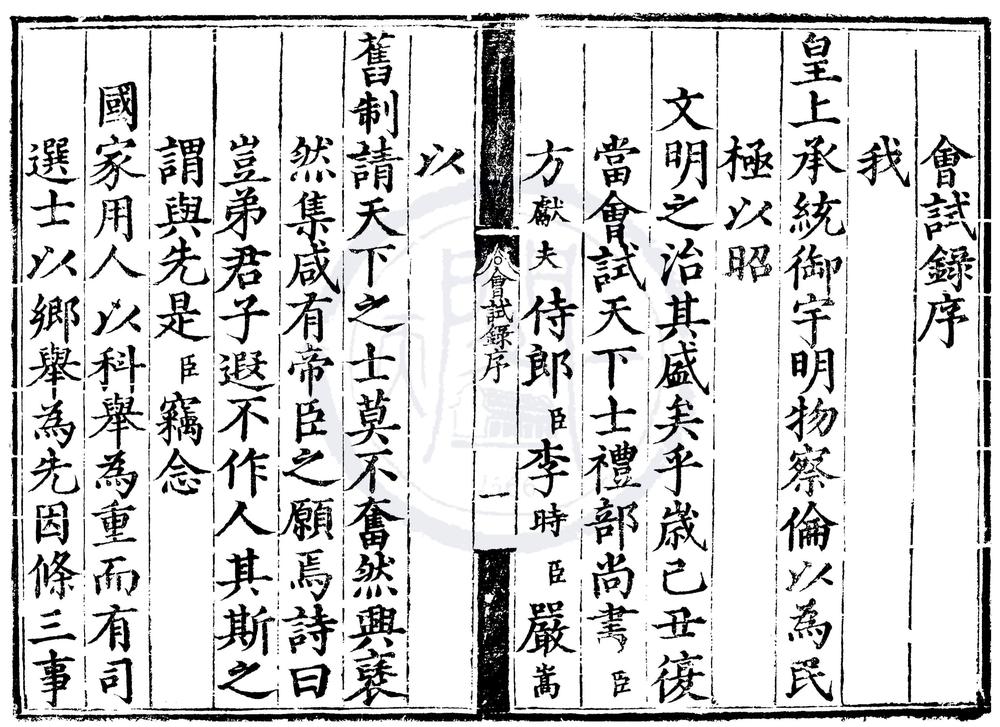 會試錄序
我
皇上承統御宇明物察倫以為民
極以昭
文明之治其盛矣乎歲己丑復
當會試天下士禮部尚書臣
方獻夫侍郎臣李時臣嚴嵩
會試錄序
一
以
舊制請天下之士莫不奮然興褎
然集咸有帝臣之願焉詩曰
豈弟君子遐不作人其斯之
謂與先是臣竊念
國家用人以科舉為重而有司
選士以鄉舉為先因條三事